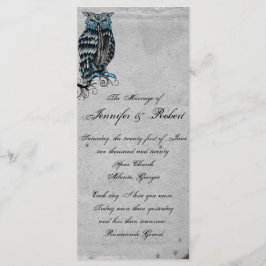 The Marriage of
Jennifer & Robert
Saturday, the twenty first of June
two thousand and twenty
Your Church
Atlanta, Georgia
Each day I love you more,
Today more than yesterday
and less than tomorrow.
Rosemonde Gerard